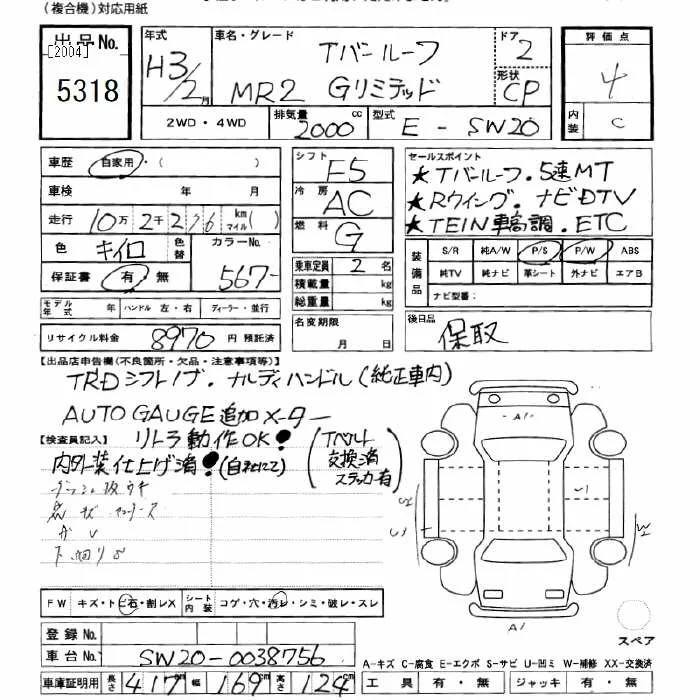 (複合機)対応用紙
出品No.
[2004]
5318
年式
H3/2月
車名・グレード
Tバールーフ
MR2 Gリミテッド
ドア
2
形状
CP
評価点
4
内装
C
2WD・4WD
排気量
2000cc
型式
E-SW20
車歴
自家用・( )
車検 年 月
走行 10万2千276 km マイル( )
色 キイロ
色替
カラーNo.
567-
保証書 有・無
モデル年式 年 ハンドル 左・右 ディーラー・並行
リサイクル料金 8970円 預託済
シフト
F5
冷房
AC
燃料
G
乗車定員 2名
積載量 kg
総重量 kg
名変期限
月 日
セールスポイント
★Tバールーフ.5速MT
★Rウイング.ナビDTV
★TEIN車高調.ETC
装備品
S/R 純A/W P/S P/W ABS
純TV 純ナビ 革シート 外ナビ エアB
ナビ型番:
後日品
保取
【出品店申告欄(不良箇所・欠品・注意事項等)】
TRDシフトノブ.ナルディハンドル(純正車内)
AUTO GAUGE追加メーター
【検査員記入】
リトラ動作OK!
(Tベルト交換済ステッカー有)
内外装仕上げ済!(自社にて)
A1
A1
FW キズ・トビ石・割レX
シート内装 コゲ・穴・汚レ・シミ・破レ・スレ
登録No.
車台No. SW20-0038756
車庫証明用 長さ 417 幅 169 高さ 124 cm
スペア
A-キズ C-腐食 E-エクボ S-サビ U-凹ミ W-補修 XX-交換済
工具 有・無 ジャッキ 有・無